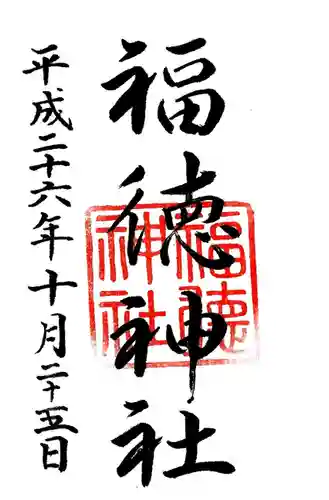 福德神社
福德神社
平成二十六年十月二十五日